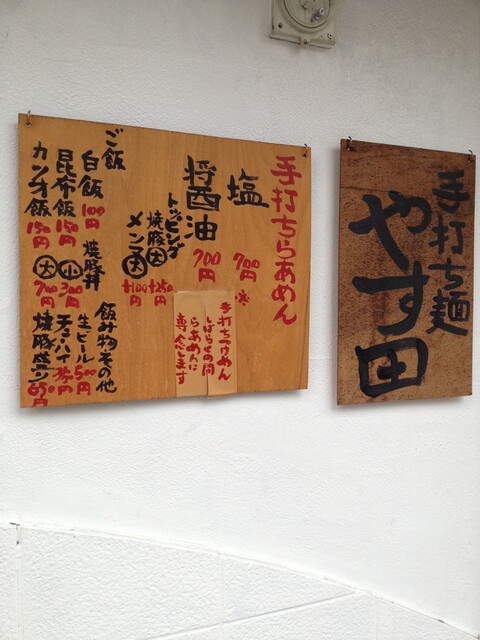 手打ち麺
やす田
手打ちらあめん
塩 700円 ※
醤油 700円
トッピング
焼豚大 +250
メン大 +100円
手打ちつけめん
しばらくの間
らあめんに
専念します
ご飯
白飯 100円
昆布飯 150円
カツオ飯 150円
焼豚丼
小 300円
大 700円
飲み物その他
生ビール 500円
焼豚盛り 650円